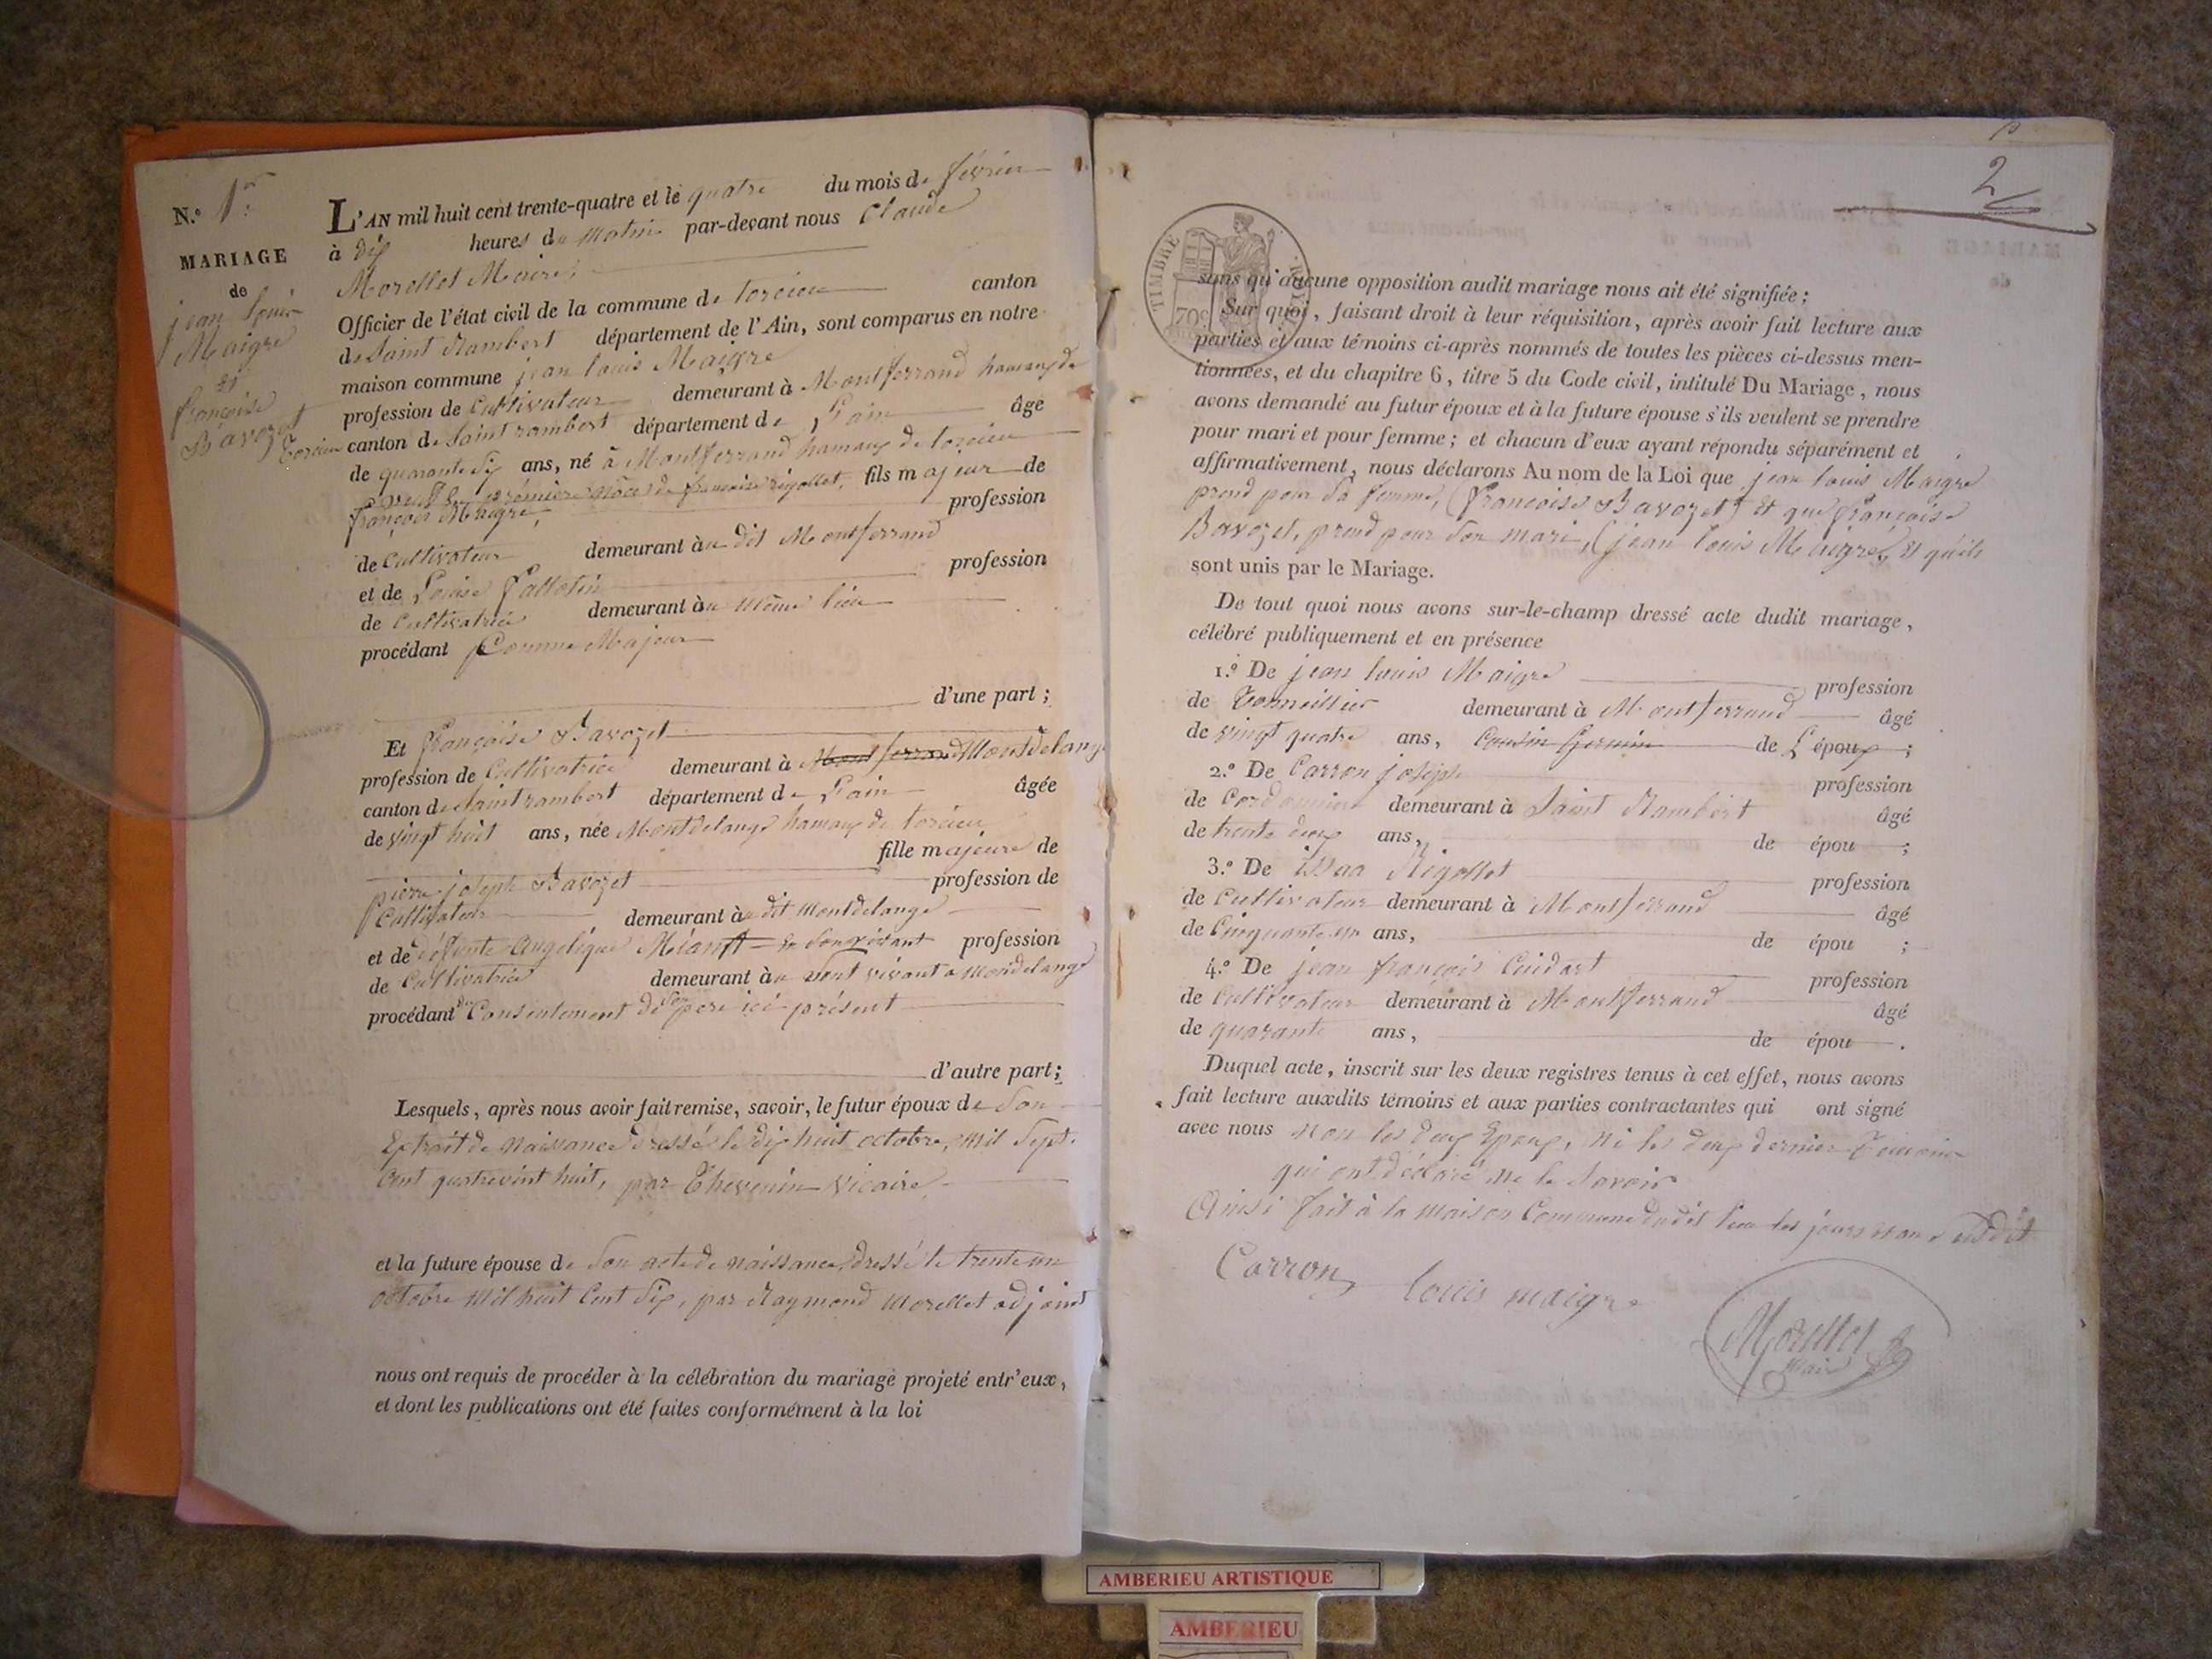 N.º 1er
MARIAGE
de
jean louis
Maigre
et
françoise
Bavozet
L'AN mil huit cent trente-quatre et le quatre du mois de février
à dix heures du matin par-devant nous Claude
Morellet Maire,
Officier de l'état civil de la commune de torcieu canton
de Saint Rambert département de l'Ain, sont comparus en notre
maison commune jean louis Maigre
profession de Cultivateur demeurant à Montferrand hamaux de
torcieu canton de Saint rambert département de l'ain âgé
de quarante six ans, né à Montferrand hamaux de torcieu
veuf en première nôce de françoise rigollet, fils majeur de
françois Maigre, profession
de Cultivateur demeurant au dit Montferrand
et de Louise profession
de Cultivatrice demeurant au même lieu
procédant Comme Majeur
d'une part ;
Et françoise Bavozet
profession de Cultivatrice demeurant à Montferrand Montdelange
canton de Saint rambert département de l'ain âgée
de vingt huit ans, née Montdelange hamaux de torcieu
fille majeure de
pierre joseph Bavozet profession de
Cultivateur demeurant au dit Montdelange
et de défunte Angélique profession
de Cultivatrice demeurant à son vivant a Mondelange
procédant du Consentement de son pere ici présent
d'autre part ;
Lesquels, après nous avoir fait remise, savoir, le futur époux de son
Extrait de naissance dressé le dix huit octobre, mil sept
Cent quatrevint huit, par Thevenin Vicaire
et la future épouse de son acte de naissance, dressé le trente un
octobre Mil huit Cent Six, par Raymond Morellet adjoint
nous ont requis de procéder à la célébration du mariage projeté entr'eux,
et dont les publications ont été faites conformément à la loi
2
TIMBRE ROYAL
70c
sans qu'aucune opposition audit mariage nous ait été signifiée ;
Sur quoi, faisant droit à leur réquisition, après avoir fait lecture aux
parties et aux témoins ci-après nommés de toutes les pièces ci-dessus men-
tionnées, et du chapitre 6, titre 5 du Code civil, intitulé Du Mariage, nous
avons demandé au futur époux et à la future épouse s'ils veulent se prendre
pour mari et pour femme ; et chacun d'eux ayant répondu séparément et
affirmativement, nous déclarons Au nom de la Loi que jean louis Maigre
prend pour sa femme, (françoise Bavozet) et que françoise
Bavozet, prend pour son mari, (jean louis Maigre) et qu'ils
sont unis par le Mariage.
De tout quoi nous avons sur-le-champ dressé acte dudit mariage,
célébré publiquement et en présence
1.º De jean louis Maigre profession
de Tonneillier demeurant à Montferrand âgé
de vingt quatre ans, Cousin Germin de L'époux ;
2.º De Carron joseph profession
de Cordonnier demeurant à Saint Rambert âgé
de trente deux ans, de épou ;
3.º De isaa Rigollet profession
de Cultivateur demeurant à Montferrand âgé
de Cinquante un ans, de épou ;
4.º De jean françois Cuidart profession
de Cultivateur demeurant à Montferrand âgé
de quarante ans, de épou .
Duquel acte, inscrit sur les deux registres tenus à cet effet, nous avons
fait lecture auxdits témoins et aux parties contractantes qui ont signé
avec nous non les deux Epoux, ni les deux dernier Temoin
qui ont déclaré ne le savoir
Ainsi fait à la maison Commune dudit lieu les jours et an susdit
Carron louis maigre
Morellet
Maire
AMBERIEU ARTISTIQUE
AMBERIEU